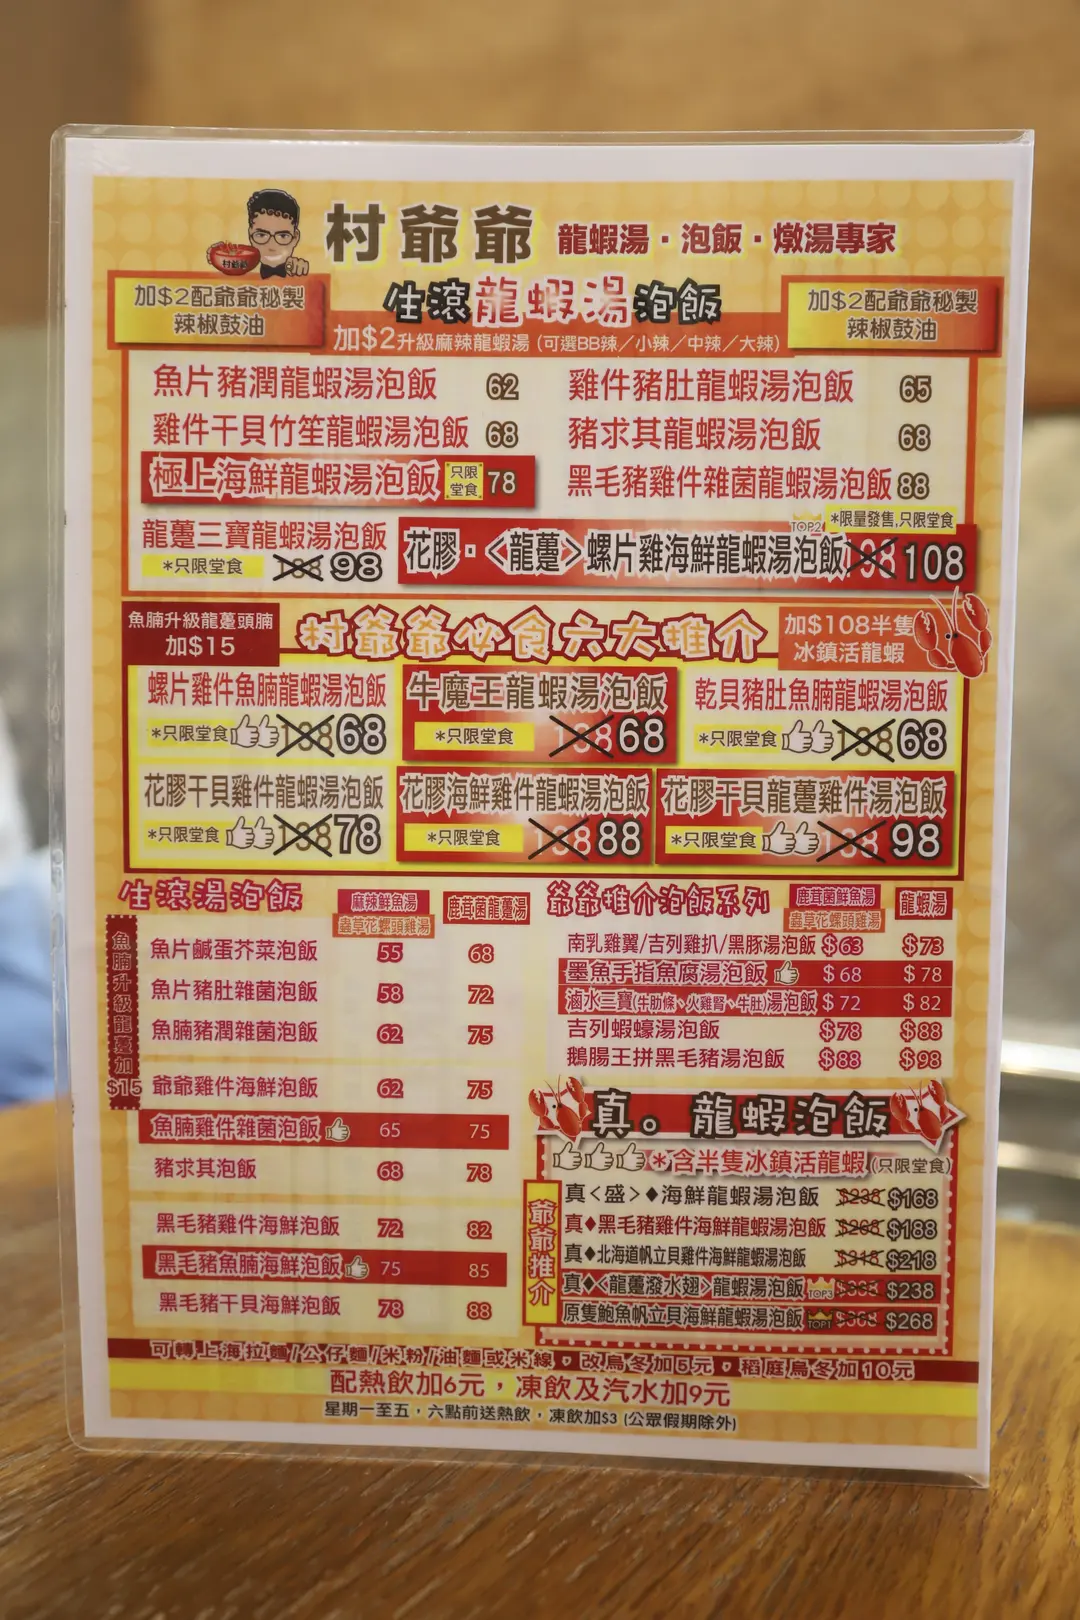 村爺爺 龍蝦湯·泡飯·燉湯專家
村爺爺
加$2配爺爺秘製
辣椒鼓油
生滾龍蝦湯泡飯
加$2配爺爺秘製
辣椒鼓油
加$2升級麻辣龍蝦湯(可選BB辣/小辣/中辣/大辣)
魚片豬潤龍蝦湯泡飯 62
雞件豬肚龍蝦湯泡飯 65
雞件干貝竹笙龍蝦湯泡飯 68
豬求其龍蝦湯泡飯 68
極上海鮮龍蝦湯泡飯 只限堂食 78
黑毛豬雞件雜菌龍蝦湯泡飯 88
TOP2 *限量發售,只限堂食
龍躉三寶龍蝦湯泡飯
*只限堂食 98
花膠·<龍躉>螺片雞海鮮龍蝦湯泡飯 198 108
魚腩升級龍躉頭腩
加$15
村爺爺必食六大推介
加$108半隻
冰鎮活龍蝦
螺片雞件魚腩龍蝦湯泡飯
*只限堂食 138 68
牛魔王龍蝦湯泡飯
*只限堂食 138 68
乾貝豬肚魚腩龍蝦湯泡飯
*只限堂食 138 68
花膠干貝雞件龍蝦湯泡飯
*只限堂食 138 78
花膠海鮮雞件龍蝦湯泡飯
*只限堂食 138 88
花膠干貝龍躉雞件湯泡飯
*只限堂食 198 98
生滾湯泡飯
麻辣鮮魚湯
蟲草花螺頭雞湯
鹿茸菌龍躉湯
魚腩升級龍躉加$15
魚片鹹蛋芥菜泡飯 55 68
魚片豬肚雜菌泡飯 58 72
魚腩豬潤雜菌泡飯 62 75
爺爺雞件海鮮泡飯 62 75
魚腩雞件雜菌泡飯 65 75
豬求其泡飯 68 78
黑毛豬雞件海鮮泡飯 72 82
黑毛豬魚腩海鮮泡飯 75 85
黑毛豬干貝海鮮泡飯 78 88
爺爺推介泡飯系列
鹿茸菌鮮魚湯
蟲草花螺頭雞湯
龍蝦湯
南乳雞翼/吉列雞扒/黑豚湯泡飯 $63 $73
墨魚手指魚腐湯泡飯 $68 $78
滷水三寶(牛肋條、火雞腎、牛肚)湯泡飯 $72 $82
吉列蝦蠔湯泡飯 $78 $88
鵝腸王拼黑毛豬湯泡飯 $88 $98
真。龍蝦泡飯
*含半隻冰鎮活龍蝦(只限堂食)
爺爺推介
真<盛>♦海鮮龍蝦湯泡飯 $238 $168
真♦黑毛豬雞件海鮮龍蝦湯泡飯 $268 $188
真♦北海道帆立貝雞件海鮮龍蝦湯泡飯 $318 $218
真♦<龍躉潑水翅>龍蝦湯泡飯 TOP3 $238
原隻鮑魚帆立貝海鮮龍蝦湯泡飯 TOP1 $368 $268
可轉上海拉麵/公仔麵/米粉/油麵或米線。改烏冬加5元,稻庭烏冬加10元
配熱飲加6元,凍飲及汽水加9元
星期一至五,六點前送熱飲,凍飲加$3(公眾假期除外)